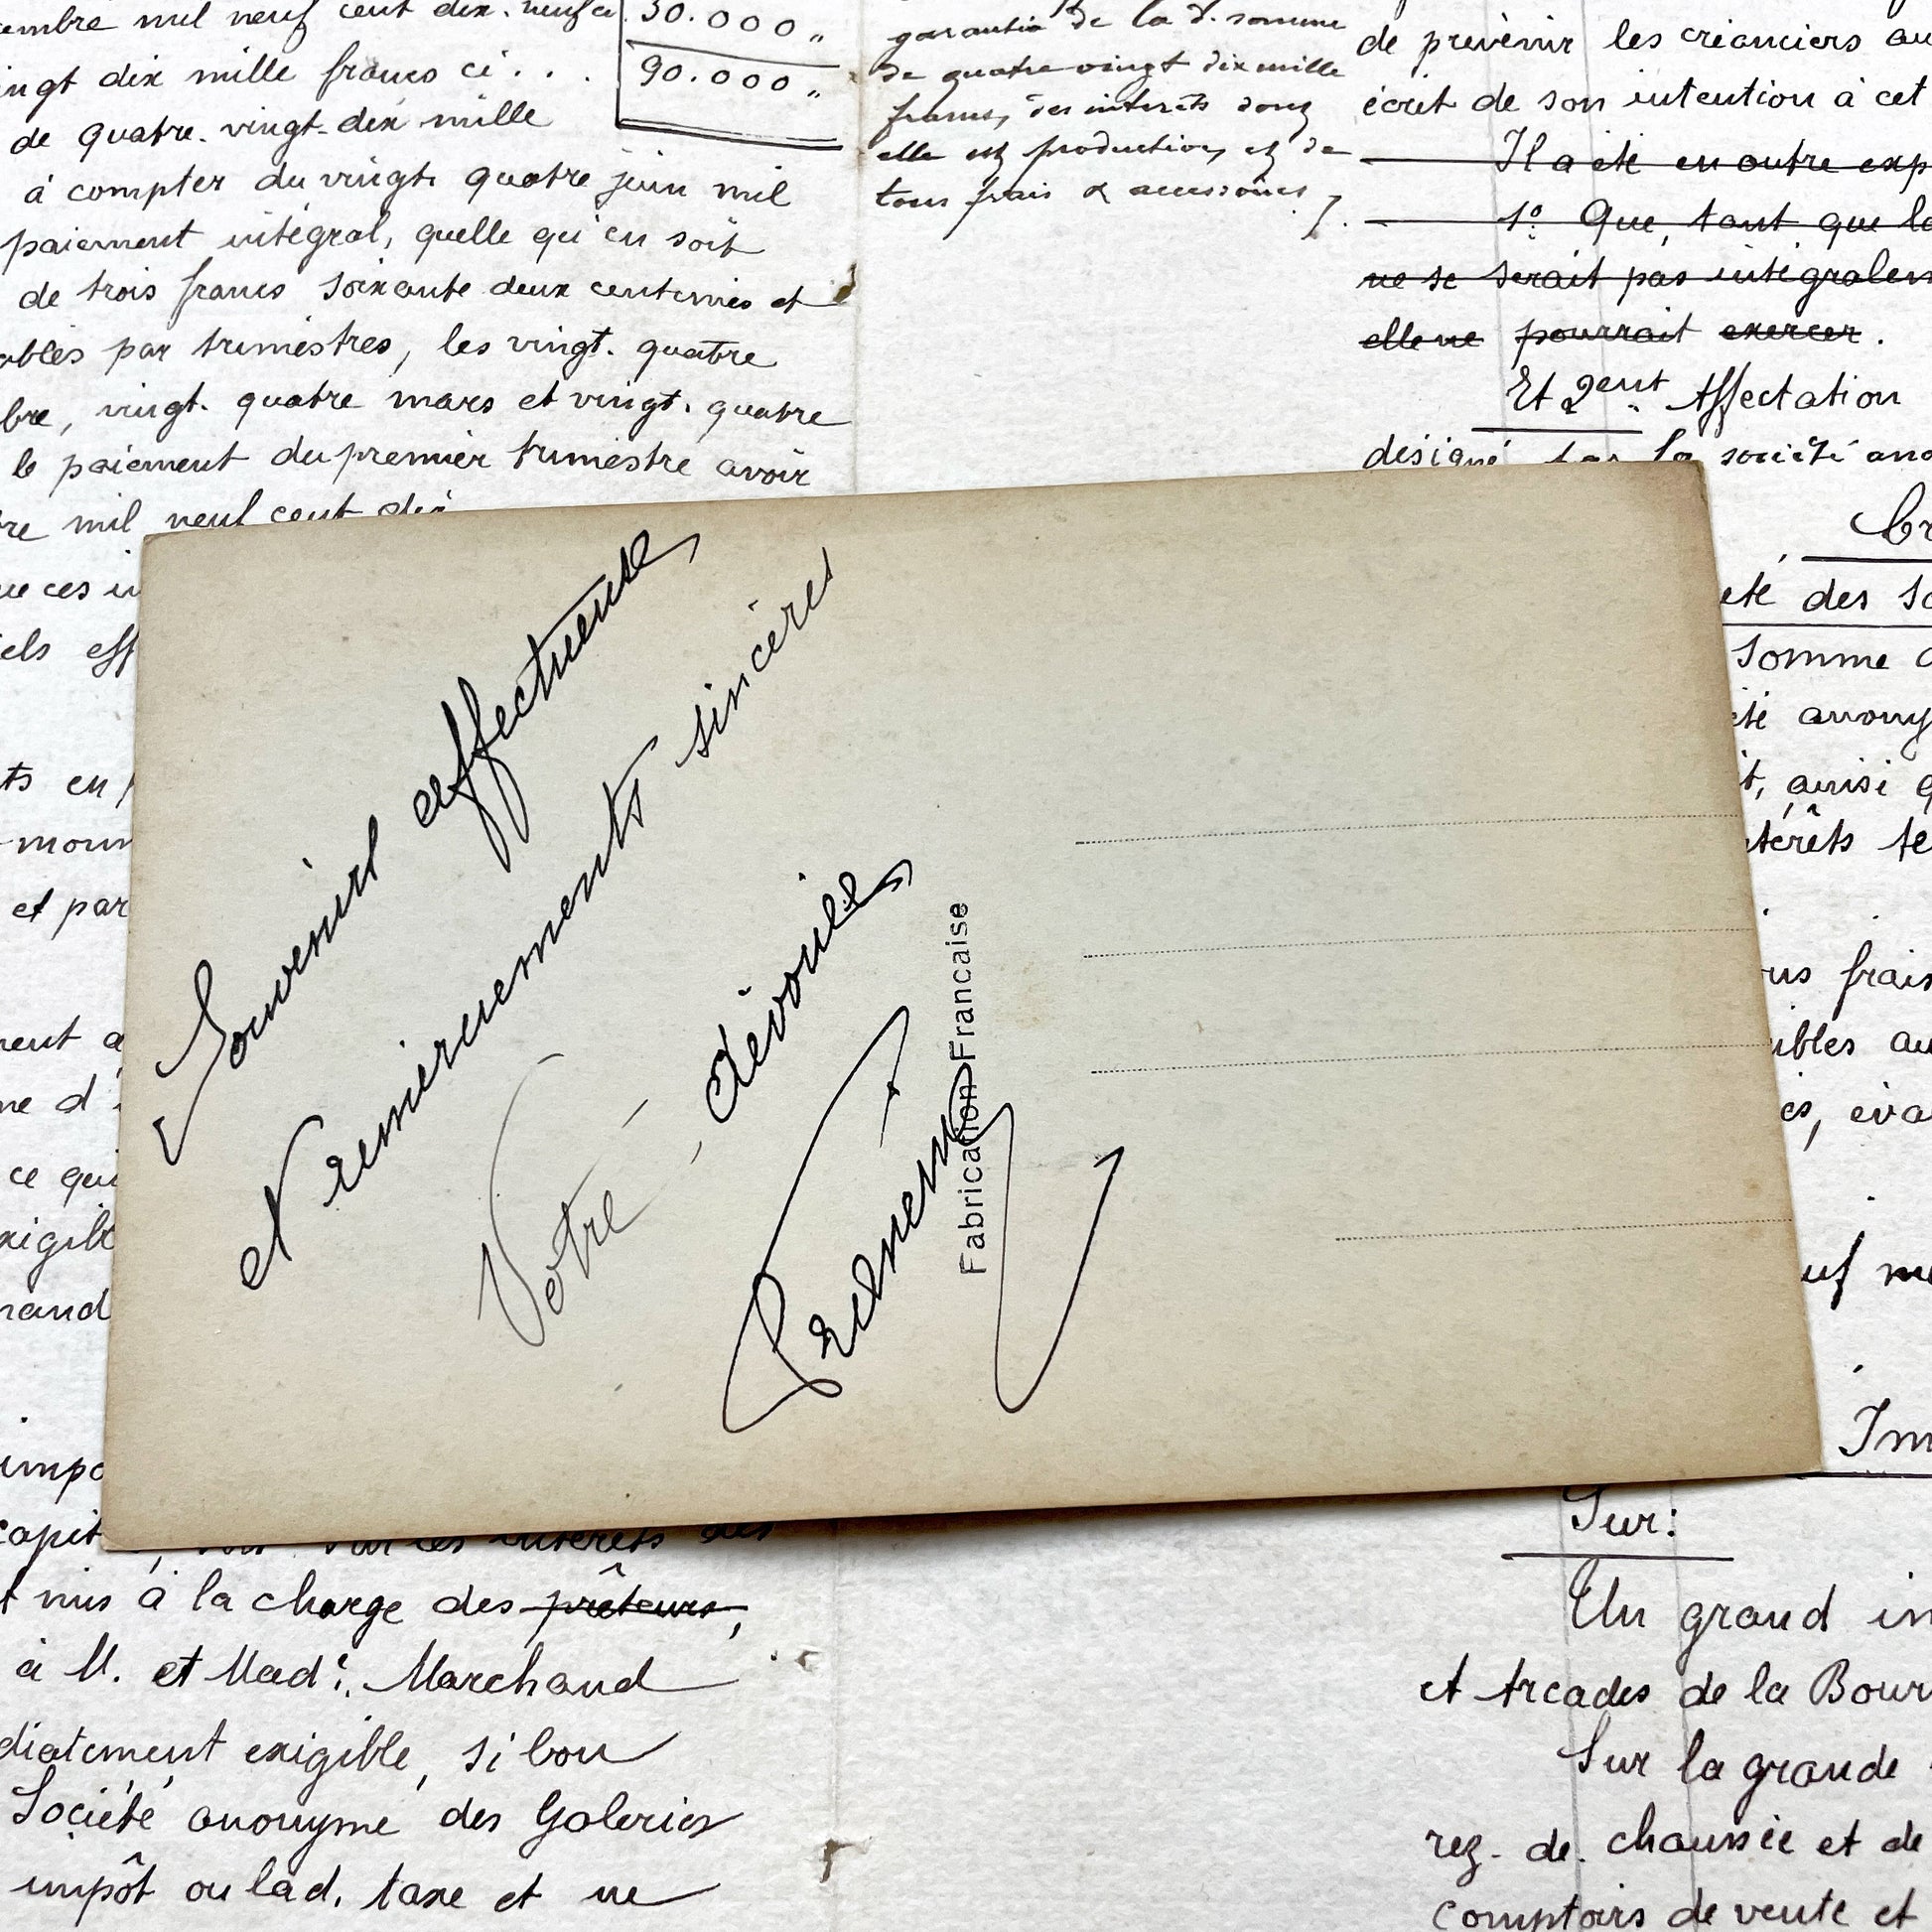 embre mil neuf cent dix. neuf ci
30.000 "
ingt dix mille francs ci . . .
90.000 "
de quatre. vingt-dix mille
à compter du vingt. quatre juin mil
paiement intégral, quelle qu'en soit
de trois francs soixante deux centimes et
ables par trimestres, les vingt. quatre
bre, vingt. quatre mars et vingt. quatre
le paiement du premier trimestre avoir
re mil neuf cent dix
ue ces in
iels eff
ts en
et par
nent a
ne d'
ce qui
xigibl
rand
impo
capit
les intérêts des
t mis à la charge des prêteurs,
à M. et Mad? Marchand
diatement exigible, si bon
Société anonyme des Galeries
impôt ou lad. taxe et ne
garantie de la d. somme
de quatre vingt dix mille
francs, des intérêts dont
elle est production, et de
tous frais & accessoires ./.
de prévenir les créanciers au
écrit de son intention à cet
Il a été en outre exp
1º. Que, tant que la
ne se serait pas intégralem
elle ne pourrait exercer.
Et 2ent. Affectation
désigné par la société ano
Cr
été des So
somme d
été anony
t, ainsi q
ntérêts te
ous frais
ibles au
es, éva
uf me
Im
Sur:
Un grand im
et Arcades de la Bour
Sur la grande
rez. de. chaussée et de
comptoirs de vente et
Souvenirs affectueux
et remerciements sincères
Votre dévouée
Fabrication Francaise